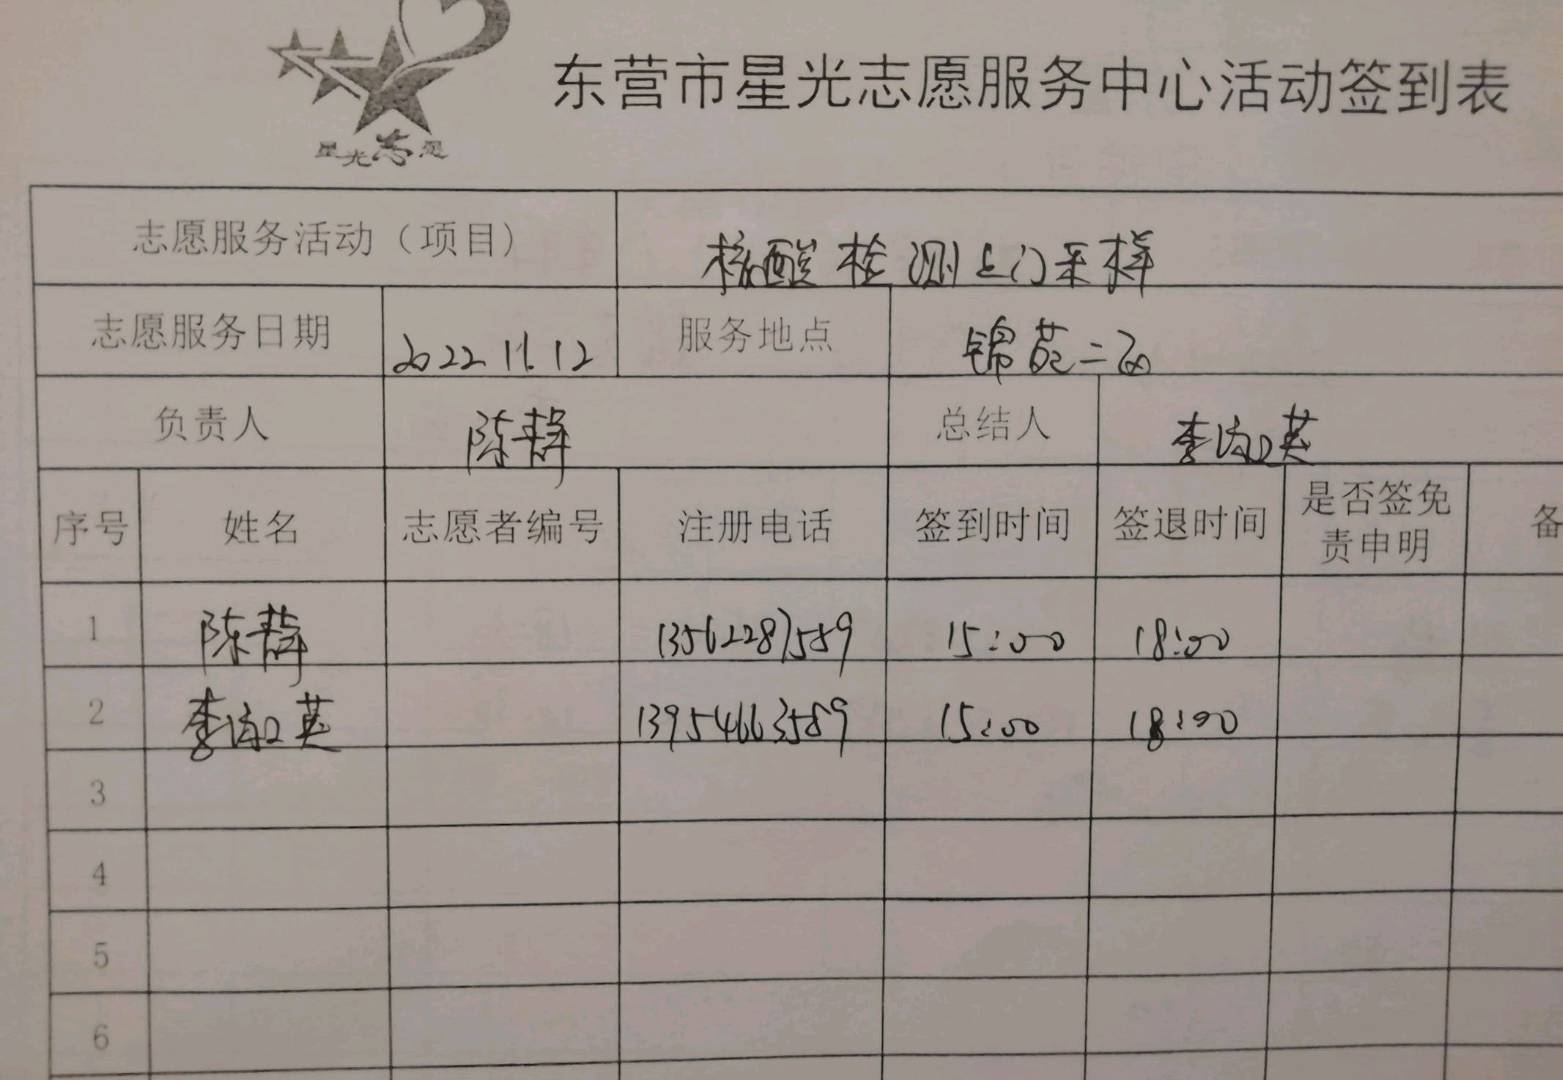 星光志愿
东营市星光志愿服务中心活动签到表
志愿服务活动（项目） 核酸检测上门采样
志愿服务日期 2022.11.12 服务地点 锦苑二区
负责人 陈静 总结人 李淑英
序号 姓名 志愿者编号 注册电话 签到时间 签退时间 是否签免责申明 备
1 陈静 13562287559 15:00 18:00
2 李淑英 13954663589 15:00 18:00
3
4
5
6